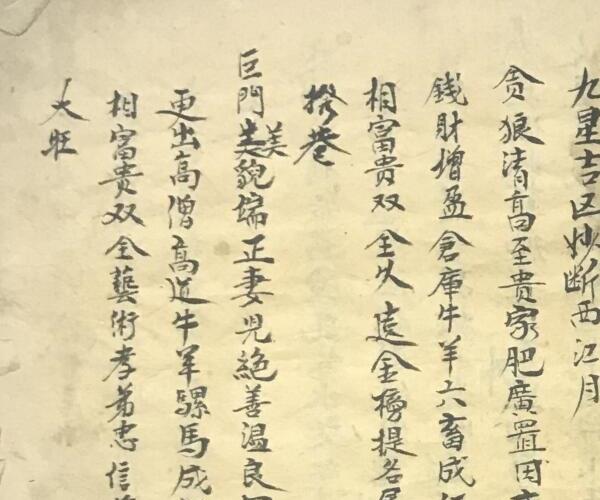 九星吉凶妙断西江月
贪狼清高至貴家肥廣置田
錢財增盈倉庫牛羊六畜成
相富貴双全久遠金榜提名
撥卷
巨門美貌端正妻児絶善温良
更出高僧高道牛羊騾馬成
相富貴双全藝術孝弟忠信
大旺